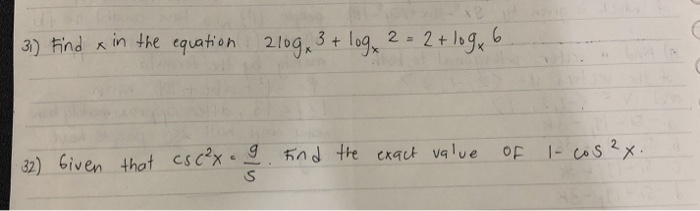 31) Find x in the equation 2logₓ 3 + logₓ 2 = 2 + logₓ 6
32) Given that csc²x = 9/5. Find the exact value OF 1 - cos²x.